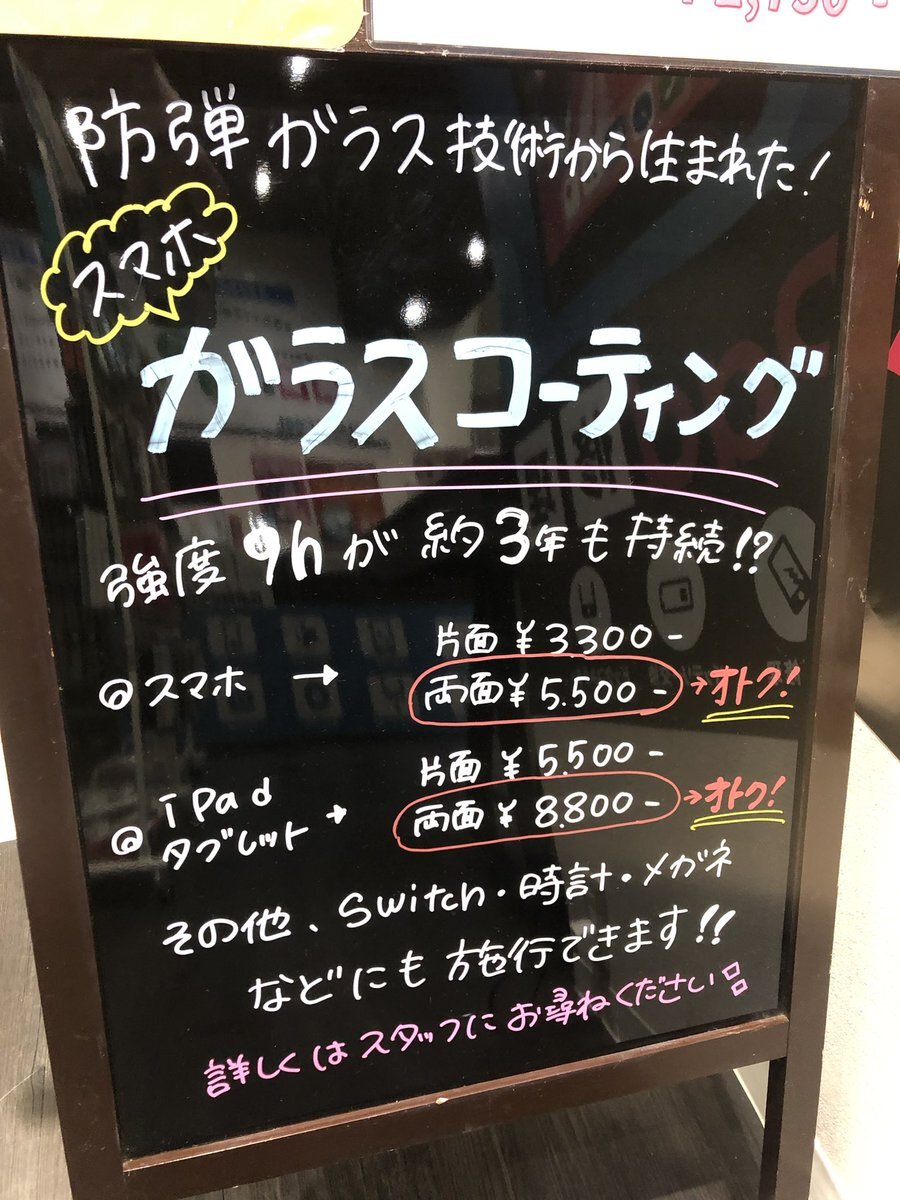 防弾ガラス技術から生まれた!
スマホ
ガラスコーティング
強度9hが約3年も持続!?
◎スマホ → 片面 ¥3300-
両面 ¥5.500- →オトク!
◎iPad タブレット → 片面 ¥5.500-
両面 ¥8.800- →オトク!
その他、Switch・時計・メガネ
などにも施行できます!!
詳しくはスタッフにお尋ねください!!